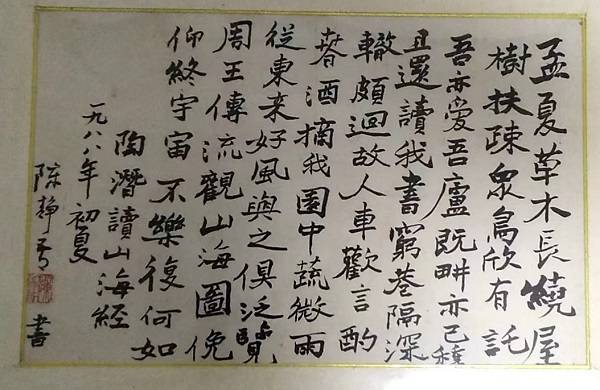 孟夏草木長繞屋
樹扶疎衆鳥欣有託
吾亦愛吾廬既畊亦已種
且還讀我書窮巷隔深
轍頗迴故人車歡言酌
春酒摘我園中蔬微雨
從東来好風與之俱泛覽
周王傳流觀山海圖俛
仰終宇宙不樂復何如
陶潛讀山海經
一九八八年初夏
陈静 書